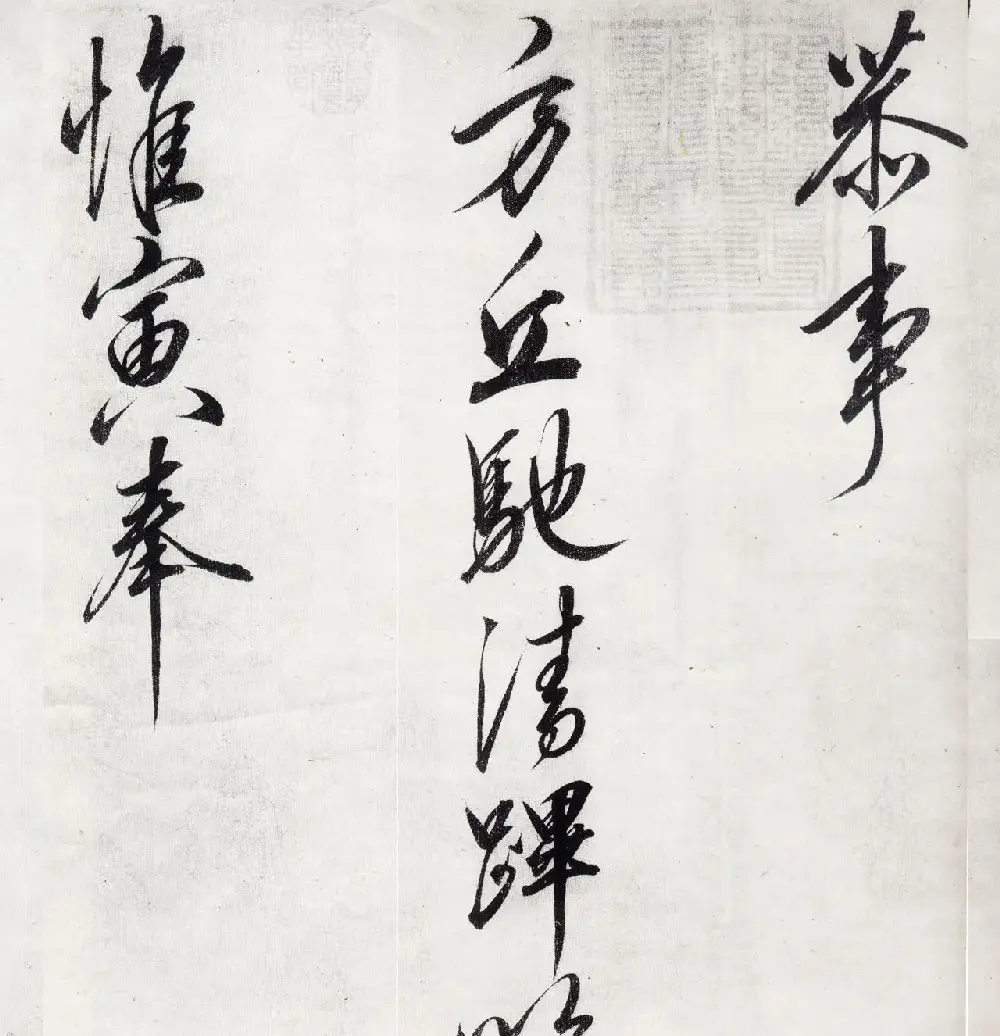 恭事
方丘馳清蹕
惟寅奉